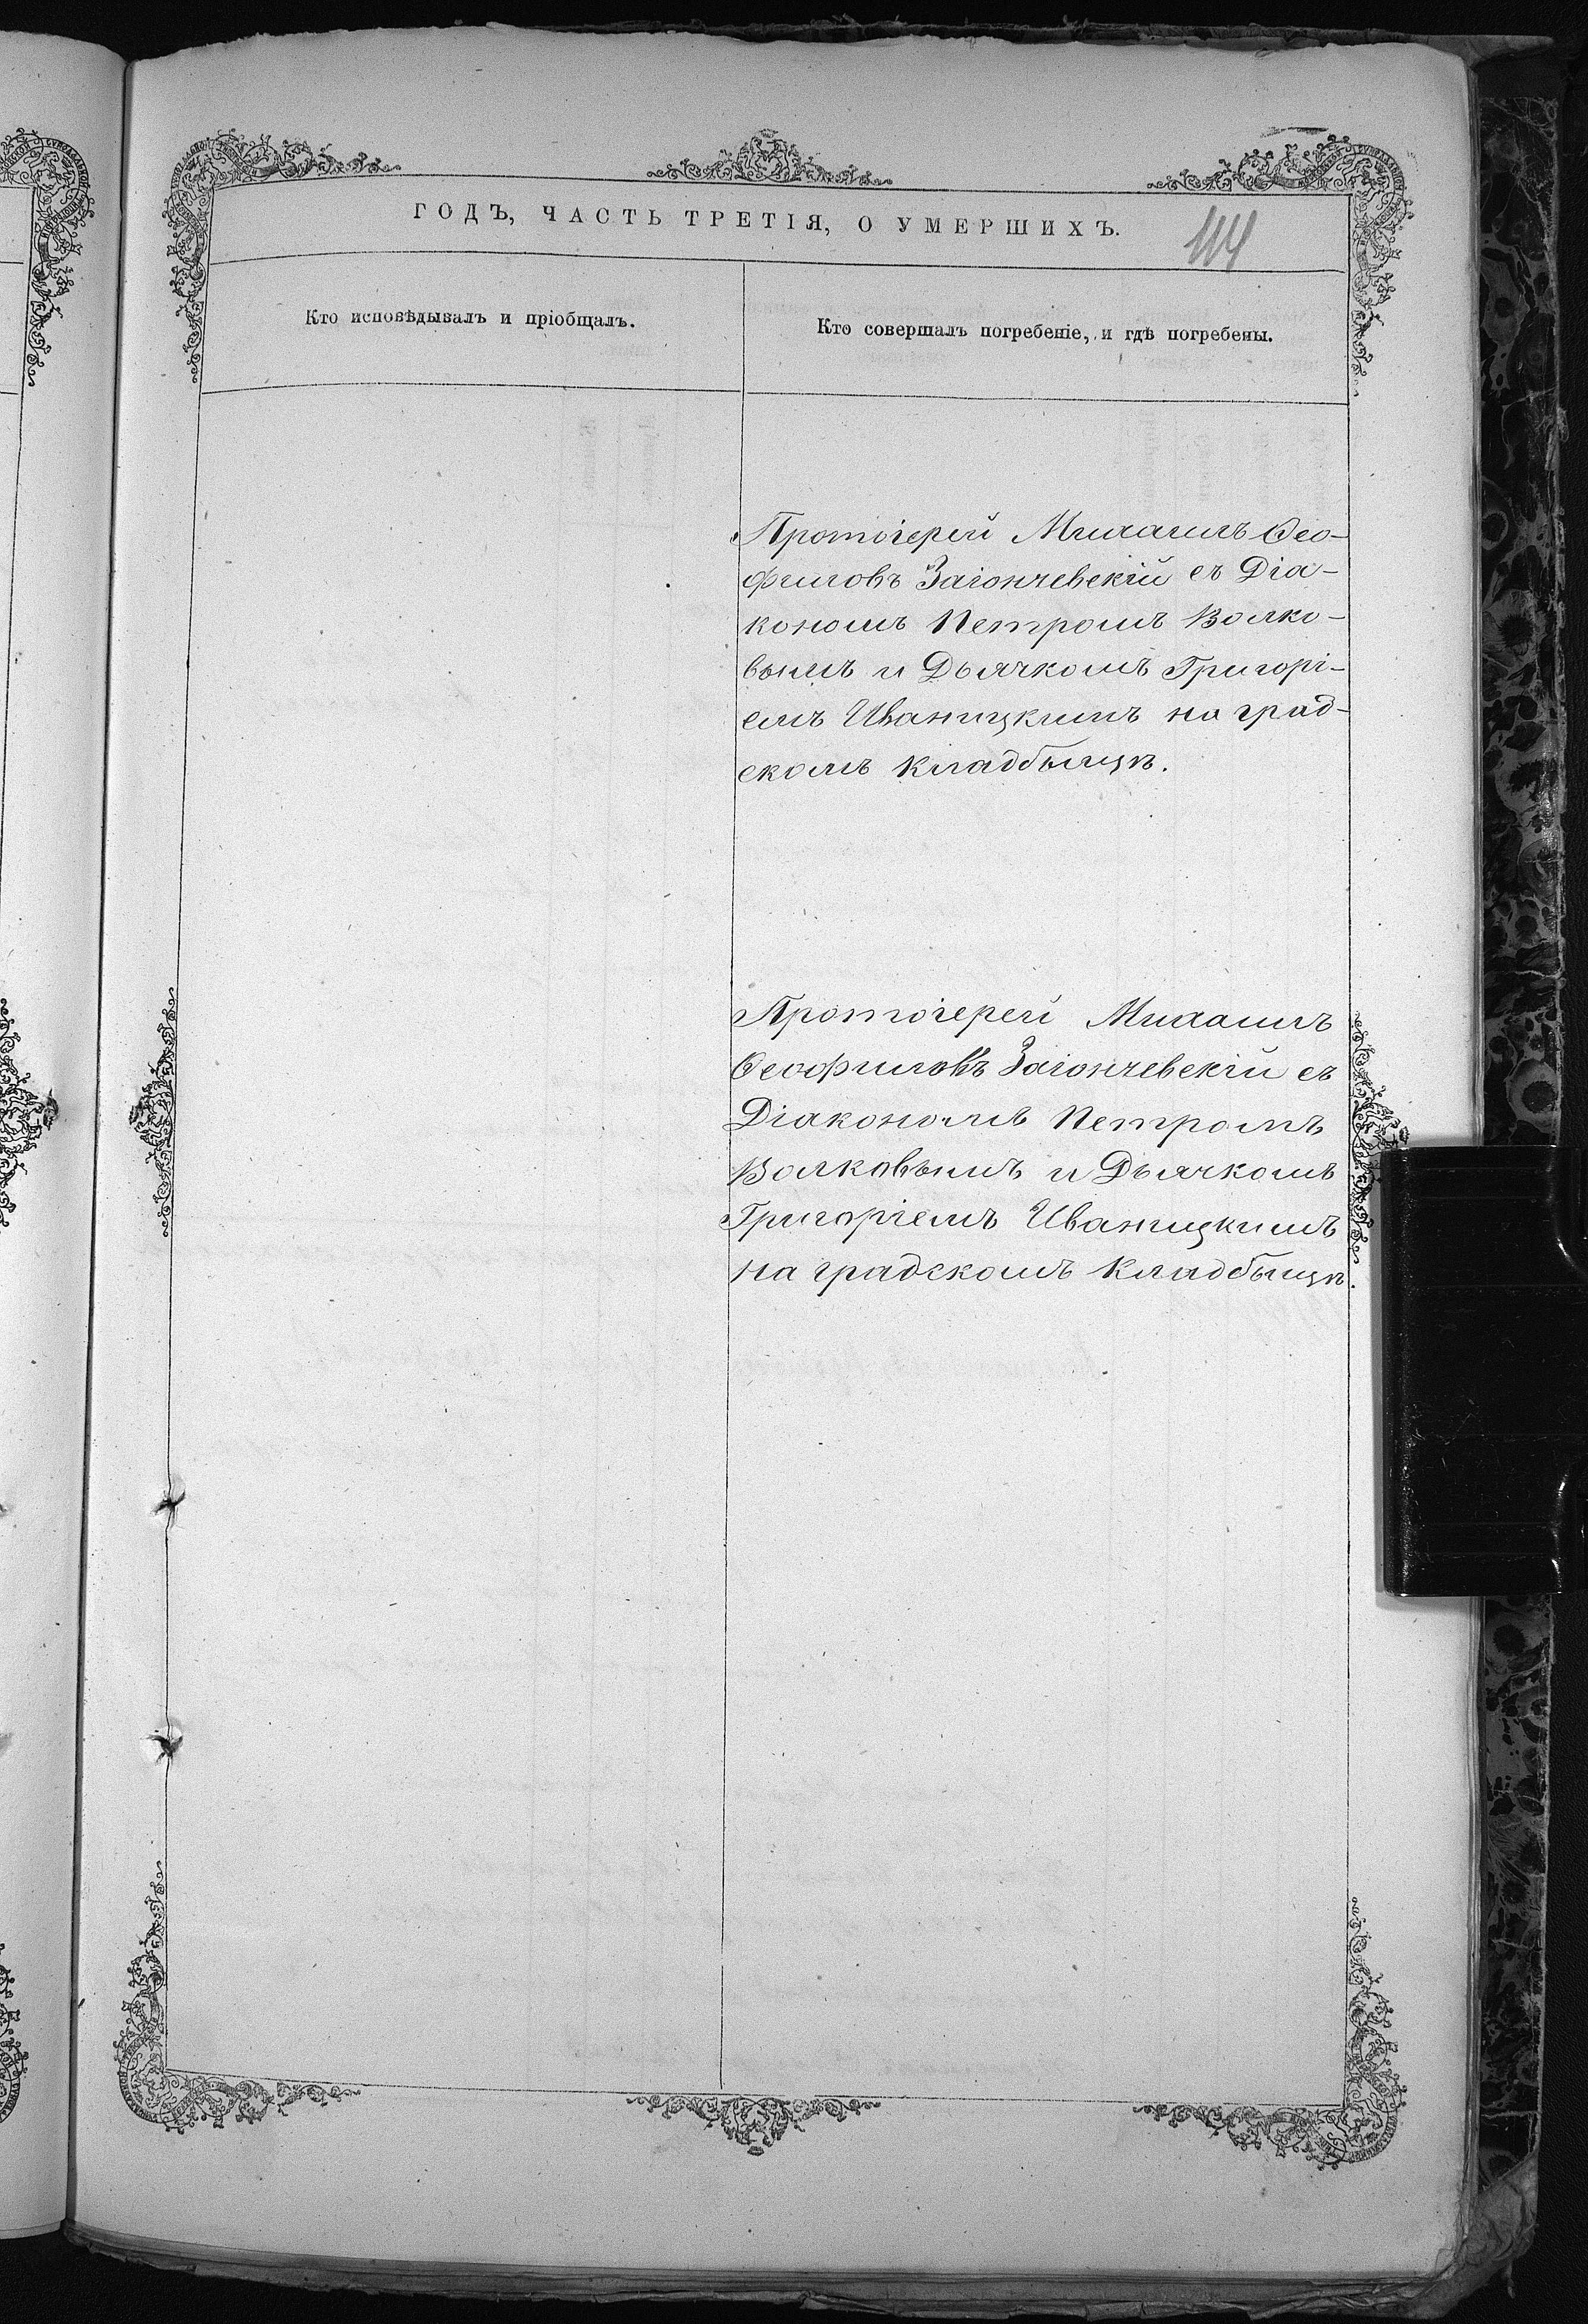 ГОДЪ, ЧАСТЬ ТРЕТІЯ, О УМЕРШИХЪ.
114
Кто исповѣдывалъ и пріобщалъ.
Кто совершалъ погребеніе, и гдѣ погребены.
Протоіерей Михаилъ Ѳео-
филовъ Заіончевскій съ Діа-
кономъ Петромъ Волко-
вымъ и Дьячкомъ Григорі-
емъ Иваницкимъ на град-
скомъ кладбыщѣ.
Протоіерей Михаилъ
Ѳеофиловъ Заіончевскій съ
Діакономъ Петромъ
Волковымъ и Дьячкомъ
Григоріемъ Иваницкимъ
на градскомъ кладбыщѣ.